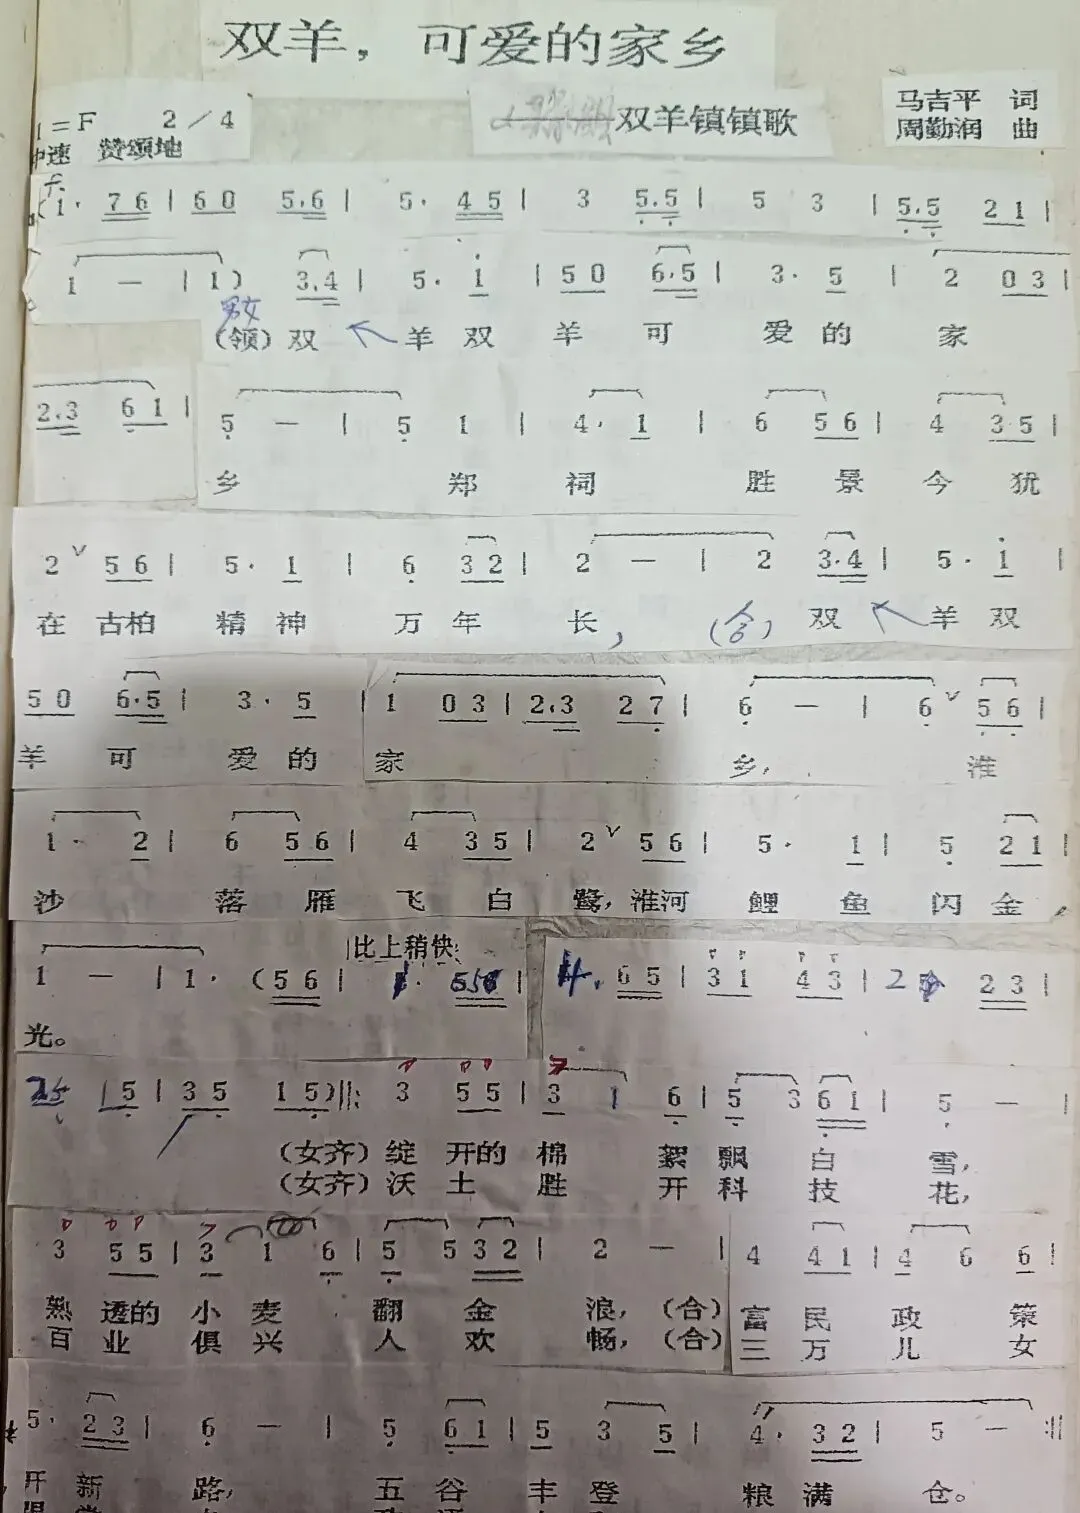 双羊，可爱的家乡
双羊镇镇歌
马吉平 词
周勤润 曲
1=F 2／4
中速 赞颂地
(1· 7 6 | 6 0 5.6 | 5· 4 5 | 3 5.5 | 5 3 | 5.5 2 1 |
1 — | 1) 3.4 | 5· 1 | 5 0 6.5 | 3· 5 | 2 0 3 |
男女
(领)双 羊 双 羊 可 爱 的 家
2.3 6 1 | 5 — | 5 1 | 4· 1 | 6 5 6 | 4 3 5
乡 郑 祠 胜 景 今 犹
2 ∨ 5 6 | 5· 1 | 6 3 2 | 2 — | 2 3.4 | 5· 1 |
在 古柏 精 神 万 年 长， (合) 双 羊 双
5 0 6.5 | 3· 5 | 1 0 3 | 2.3 2 7 | 6 — | 6 ∨ 5 6 |
羊 可 爱 的 家 乡， 淮
1· 2 | 6 5 6 | 4 3 5 | 2 ∨ 5 6 | 5· 1 | 5 2 1 |
沙 落 雁 飞 白 鹭，淮河 鲤 鱼 闪 金，
比上稍快
1 — | 1· (5 6 | 1· 5 5 6 | 4· 6 5 | 3 1 4 3 | 2 5 2 3 |
光。
5 | 3 5 1 5) ‖: 3 5 5 | 3 1 6 | 5 3 6 1 | 5 — |
(女齐) 绽 开的 棉 絮 飘 白 雪，
(女齐) 沃 土 胜 开 科 技 花，
3 5 5 | 3 1 6 | 5 5 3 2 | 2 — | 4 4 1 | 4 6 6 |
熟 透的 小 麦 翻 金 浪，(合) 富 民 政 策
百 业 俱 兴 人 欢 畅，(合) 三 万 儿 女
5· 2 3 | 6 — | 5 6 1 | 5 3 5 | 4· 3 2 | 5 — :‖
开 新 路， 五 谷 丰 登 粮 满 仓。